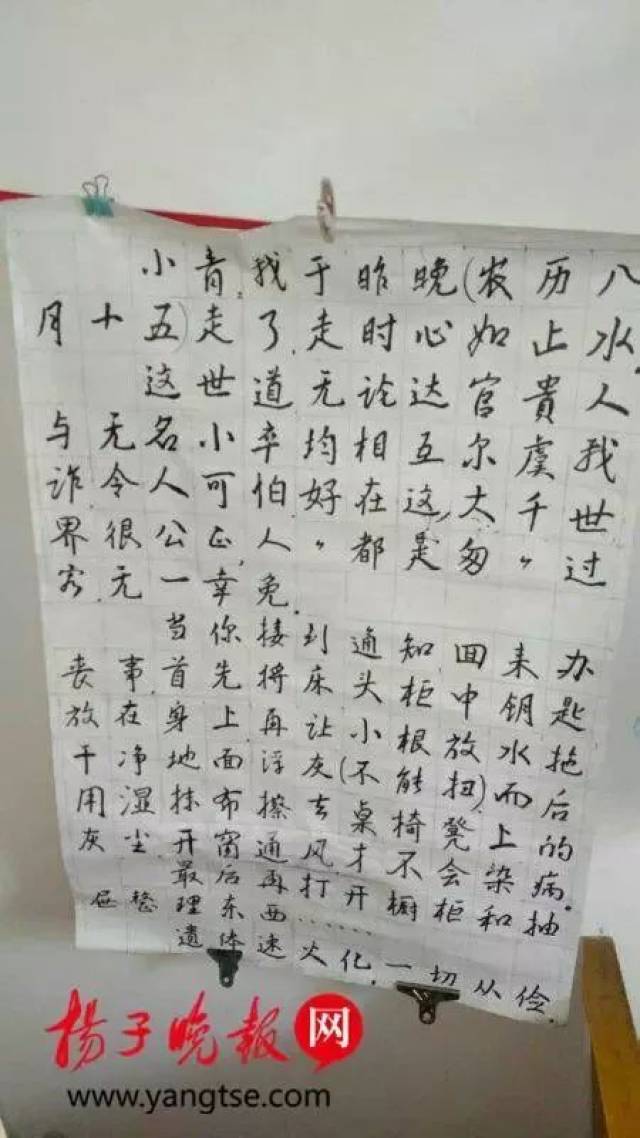 小青,我于昨晚(农历八
月十五)走了,走时心如止水.
这世道无论达官貴人
与无名小卒均相互尔虞我
诈.令人可怕.好在这,大千世
界很公正,人"都是匆匆"过
客.无一幸免.
当你接到通知回来办
丧事.首先将床头柜中钥匙
放在身上再让小根放水拖
干净地面浮灰(不能扭)而后
用湿抹布擦去桌椅凳上的
灰尘.开窗通风才不会染病.
最后再打开橱柜和抽
屉整理东西……
遗体速火化.一切从俭.
扬子晚报网
www.yangtse.com